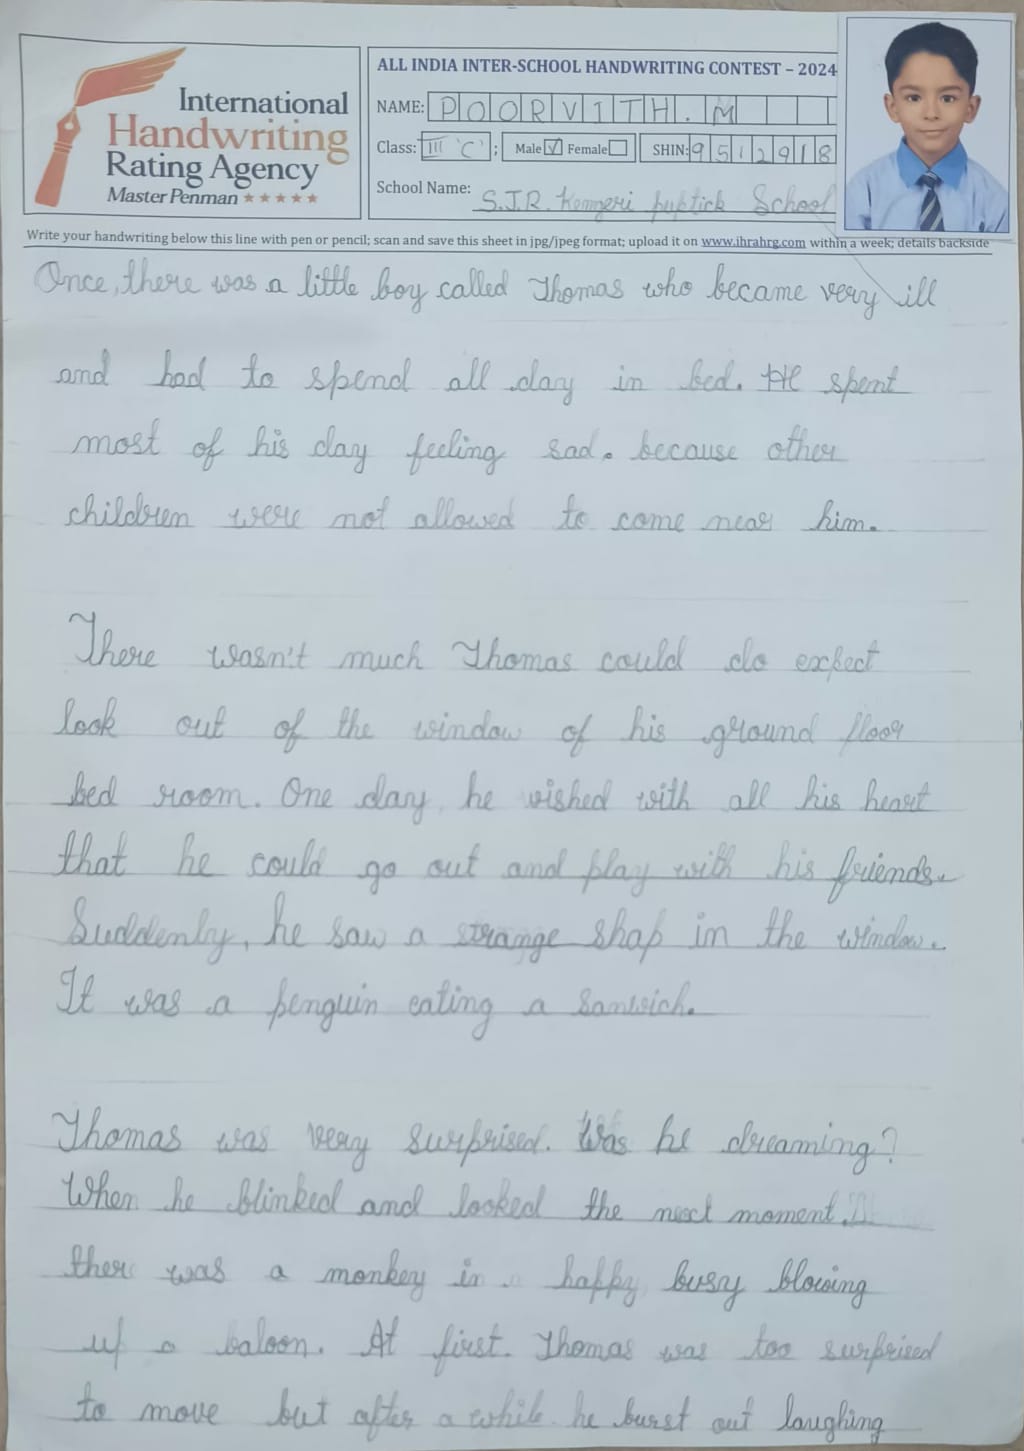 International
Handwriting
Rating Agency
Master Penman
ALL INDIA INTER-SCHOOL HANDWRITING CONTEST – 2024
NAME: POORVITH.M
Class: III 'C' ; Male Female SHIN: 9512918
School Name: S.J.R. Kengeri School
Write your handwriting below this line with pen or pencil; scan and save this sheet in jpg/jpeg format; upload it on www.ihrahrg.com within a week; details backside
Once, there was a little boy called Thomas who became very ill
and had to spend all day in bed. He spent
most of his day feeling sad. because other
children were not allowed to come near him.
There wasn't much Thomas could do expect
look out of the window of his ground floor
bed room. One day, he wished with all his heart
that he could go out and play with his friends.
Suddenly, he saw a strange shap in the window.
It was a penguin eating a sanwich.
Thomas was very surprised. Was he dreaming?
When he blinked and looked the next moment.
there was a monkey in happy, busy blowing
up a baloon. At first. Thomas was too surprised
to move but after a while he burst out laughing